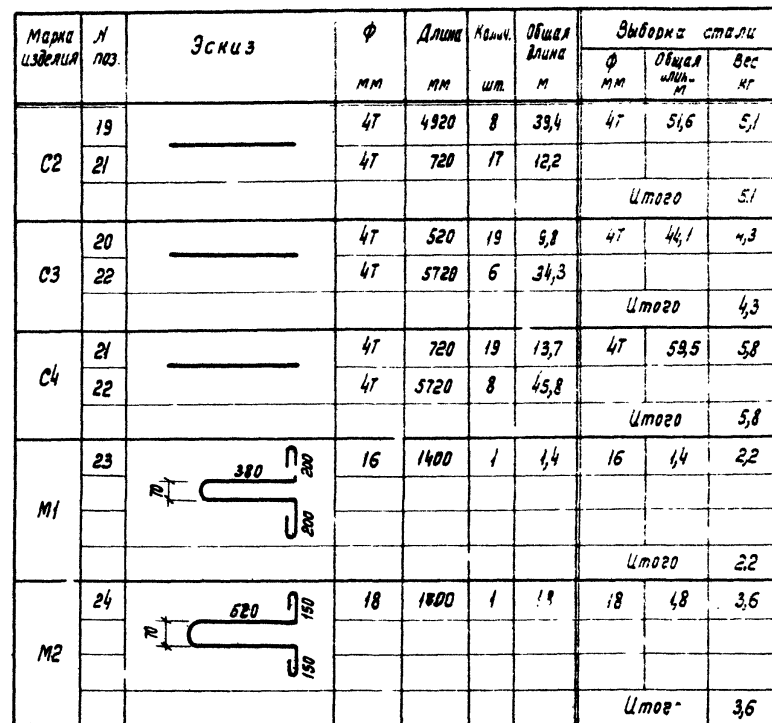 Марка изделия N поз. Эскиз Ф мм Длина мм Колич. шт. Общая длина м Выборка стали
Ф мм Общая длин. м Вес кг
С2 19 4Т 4920 8 39,4 4Т 51,6 5,1
21 4Т 720 17 12,2
Итого 5.1
С3 20 4Т 520 19 9,8 4Т 44,1 4,3
22 4Т 5720 6 34,3
Итого 4,3
С4 21 4Т 720 19 13,7 4Т 59,5 5,8
22 4Т 5720 8 45,8
Итого 5,8
М1 23 380 70 200 200 16 1400 1 1,4 16 1,4 2,2
Итого 2.2
М2 24 620 70 150 150 18 1800 1 18 1,8 3,6
Итог- 3,6